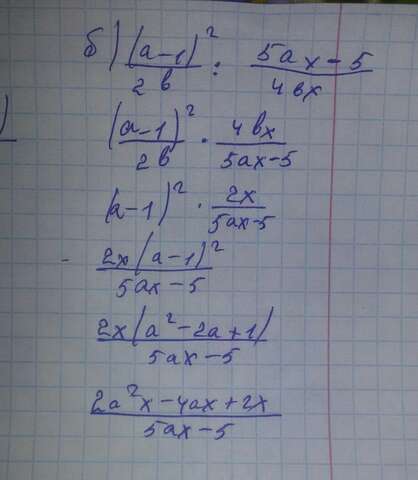 б) (a-1)²/2b : 5ax-5/4bx
(a-1)²/2b · 4bx/5ax-5
(a-1)² · 2x/5ax-5
2x(a-1)²/5ax-5
2x(a²-2a+1)/5ax-5
2a²x-4ax+2x/5ax-5